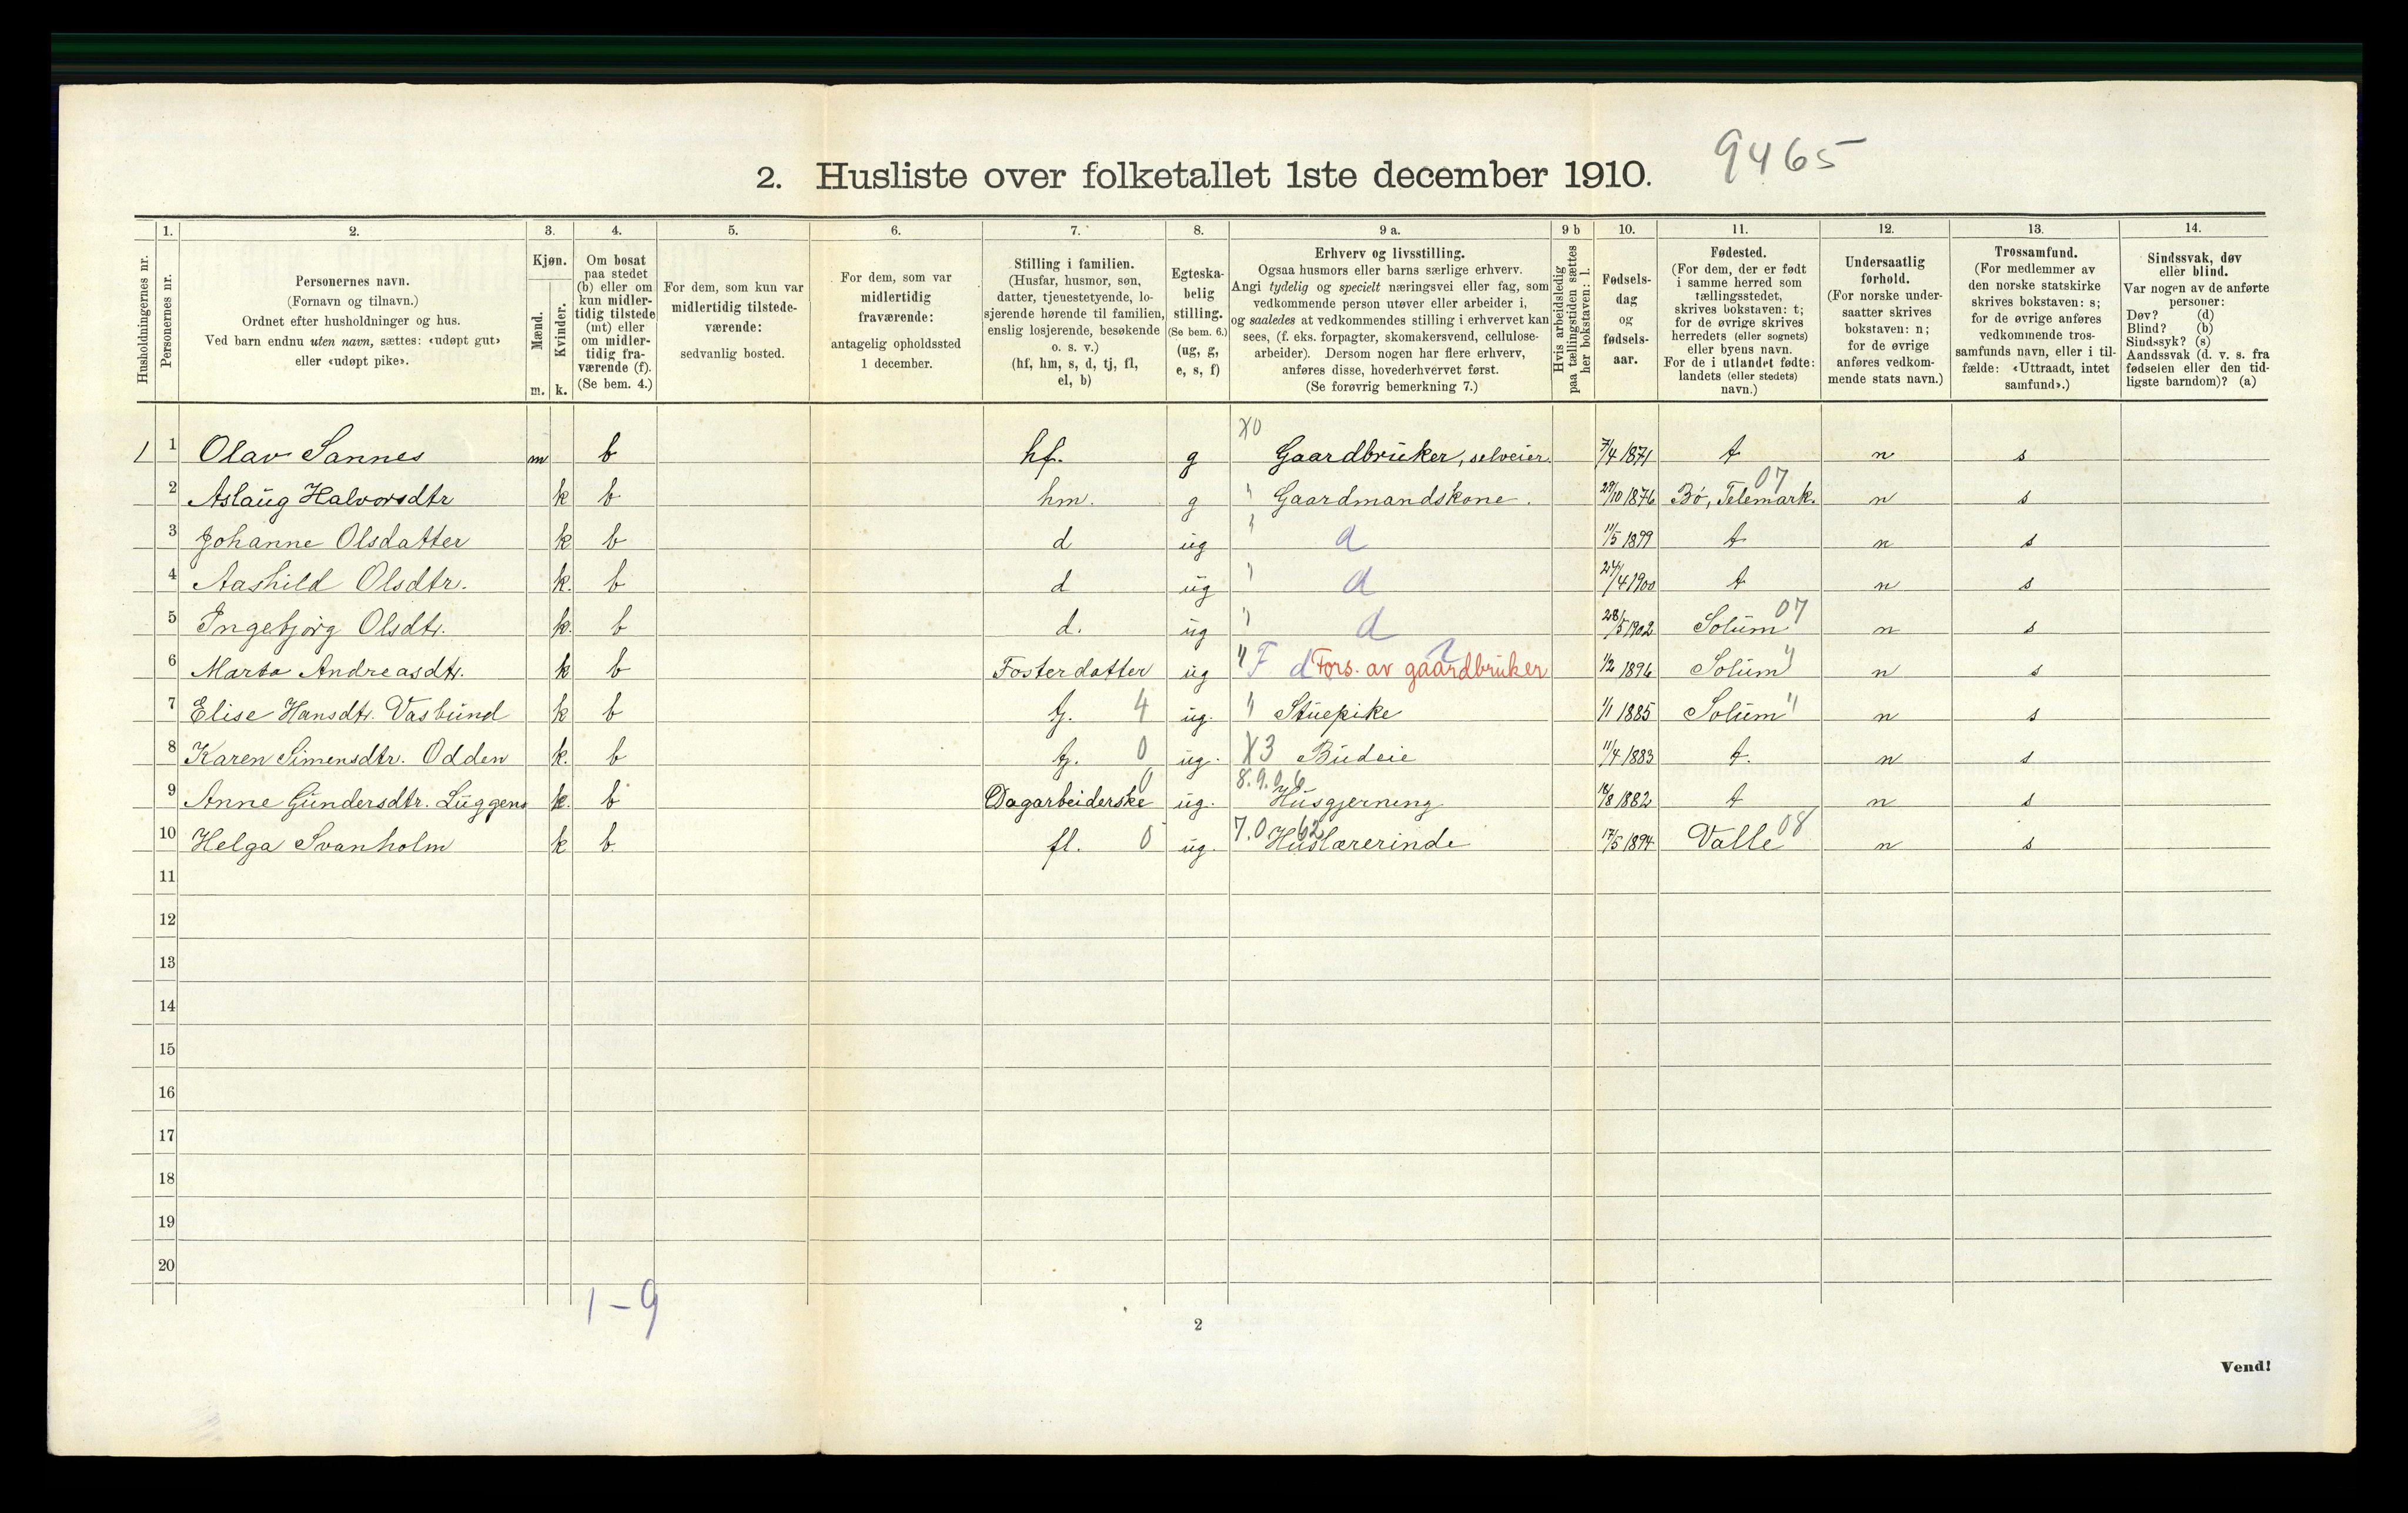 9465
2. Husliste over folketallet 1ste december 1910.
Husholdningernes nr.
1.
Personernes nr.
2.
Personernes navn.
(Fornavn og tilnavn.)
Ordnet efter husholdninger og hus.
Ved barn endnu uten navn, sættes: «udøpt gut»
eller «udøpt pike».
3.
Kjøn.
Mænd.
Kvinder.
m. k.
4.
Om bosat
paa stedet
(b) eller om
kun midler-
tidig tilstede
(mt) eller
om midler-
tidig fra-
værende (f).
(Se bem. 4.)
5.
For dem, som kun var
midlertidig tilstede-
værende:
sedvanlig bosted.
6.
For dem, som var
midlertidig
fraværende:
antagelig opholdssted
1 december.
7.
Stilling i familien.
(Husfar, husmor, søn,
datter, tjenestetyende, lo-
sjerende hørende til familien,
enslig losjerende, besøkende
o. s. v.)
(hf, hm, s, d, tj, fl,
el, b)
8.
Egteska-
belig
stilling.
(Se bem. 6.)
(ug, g,
e, s, f)
9 a.
Erhverv og livsstilling.
Ogsaa husmors eller barns særlige erhverv.
Angi tydelig og specielt næringsvei eller fag, som
vedkommende person utøver eller arbeider i,
og saaledes at vedkommendes stilling i erhvervet kan
sees, (f. eks. forpagter, skomakersvend, cellulose-
arbeider). Dersom nogen har flere erhverv,
anføres disse, hovederhvervet først.
(Se forøvrig bemerkning 7.)
9 b
Hvis arbeidsledig
paa tællingstiden sættes
her bokstaven: l.
10.
Fødsels-
dag
og
fødsels-
aar.
11.
Fødested.
(For dem, der er født
i samme herred som
tællingsstedet,
skrives bokstaven: t;
for de øvrige skrives
herredets (eller sognets)
eller byens navn.
For de i utlandet fødte:
landets (eller stedets)
navn.)
12.
Undersaatlig
forhold.
(For norske under-
saatter skrives
bokstaven: n;
for de øvrige
anføres vedkom-
mende stats navn.)
13.
Trossamfund.
(For medlemmer av
den norske statskirke
skrives bokstaven: s;
for de øvrige anføres
vedkommende tros-
samfunds navn, eller i til-
fælde: «Uttraadt, intet
samfund».)
14.
Sindssvak, døv
eller blind.
Var nogen av de anførte
personer:
Døv? (d)
Blind? (b)
Sindssyk? (s)
Aandssvak (d. v. s. fra
fødselen eller den tid-
ligste barndom)? (a)
1 1 Olav Sannes m b hf. g X0 Gaardbruker, selveier. 7/4 1871 t n s
2 Aslaug Halvorsdtr k b hm. g " Gaardmandskone. 29/10 1876 Bø, Telemark. 07 n s
3 Johanne Olsdatter k b d ug " d 11/5 1899 t n s
4 Aashild Olsdtr. k. b d ug " d 24/4 1900 t n s
5 Ingebjørg Olsdtr. k. b d. ug " d 28/5 1902 Solum 07 n s
6 Marta Andreasdtr. k b Fosterdatter ug " F d Fors. av gaardbruker 1/2 1896 Solum " n s
7 Elise Hansdtr. Vasbund k b tj. 4 ug. " Stuepike 1/1 1885 Solum " n s
8 Karen Simensdtr. Odden k. b tj. 0 ug. X3 Budeie 11/4 1883 t. n s
9 Anne Gundersdtr. Luggens k. b Dagarbeiderske 0 ug. 8.9.0.6 Husgjerning 16/8 1882 t n s
10 Helga Svanholm k b. fl. 0 ug. 7.0 62 Huslærerinde 17/5 1894 Valle 08 n s
11
12
13
14
15
16
17
18
19
20
1-9
2
Vend!